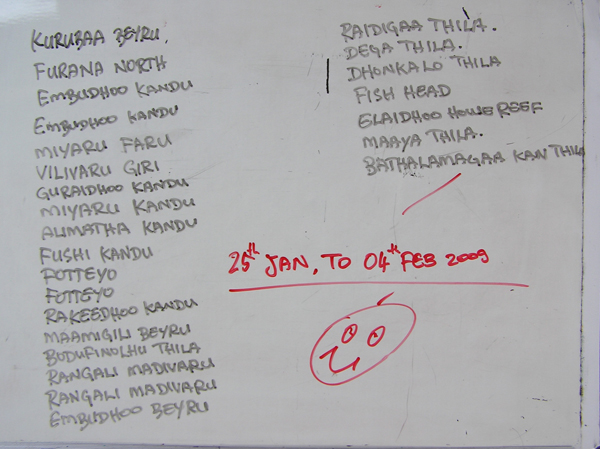 KURUBAA BEYRU.
FURANA NORTH
EMBUDHOO KANDU
EMBUDHOO KANDU
MIYARU FARU
VILIVARU GIRI
GURAIDHOO KANDU
MIYARU KANDU
ALIMATHA KANDU
FUSHI KANDU
FOTTEYO
FOTTEYO
RAKEEDHOO KANDU
MAAMIGILI BEYRU
BUDUFINOLHU THILA
RANGALI MADIVARU
RANGALI MADIVARU
EMBUDHOO BEYRU
RAIDIGAA THILA.
DEGA THILA.
DHONKALO THILA
FISH HEAD
ELAIDHOO HOUSE REEF
MAAYA THILA.
BATHALAMAGAA KAN THILA
25th JAN, TO 04th FEB 2009